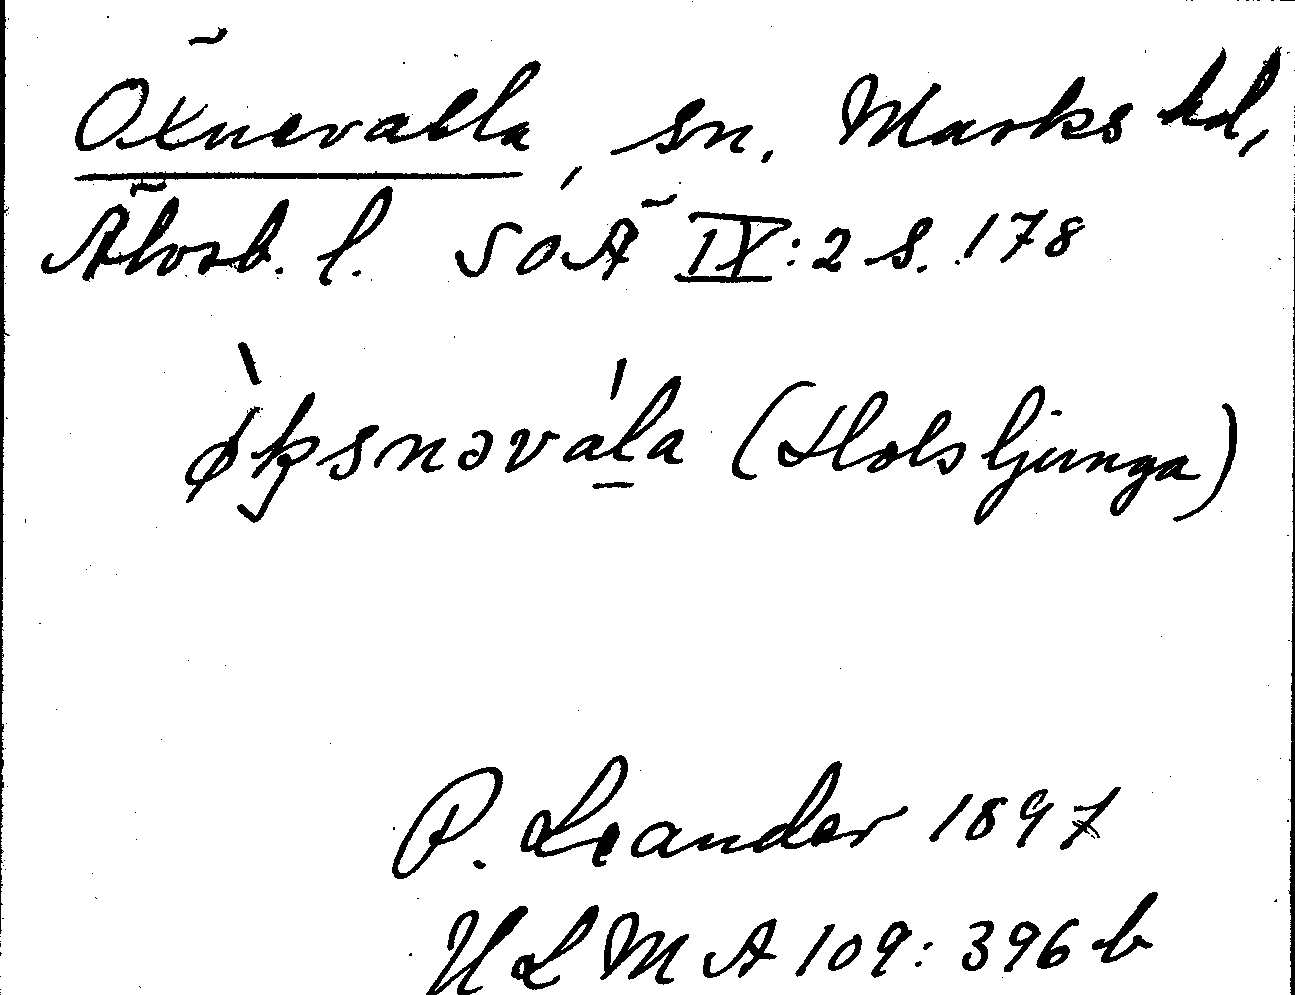 Öxnevalla, sn. Marks hd,
Älvsb. l. SOÄ IX:2 s. 178
ø̀ksnəvála (Holsljunga)
P. Leander 1897
ULMA 109:396 b